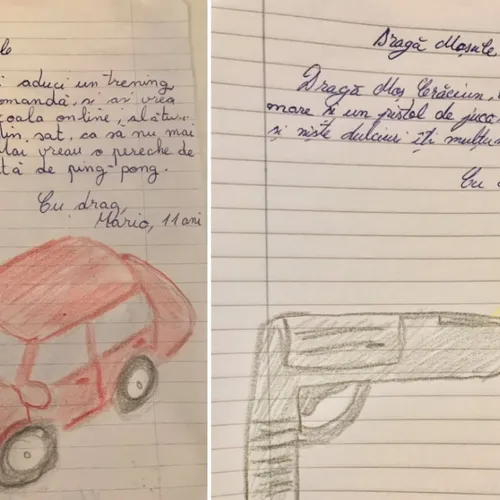 i aduci un trening
omandă, și aș vrea
coala online, alătu
din sat, ca să nu mai
Mai vreau o pereche de
tă de ping-pong.
Cu drag,
Mario, 11 ani
Dragă Moșule
Dragă Moș Crăciun,
mare și un pistol de juca
și niște dulciuri îți mulțu
Cu